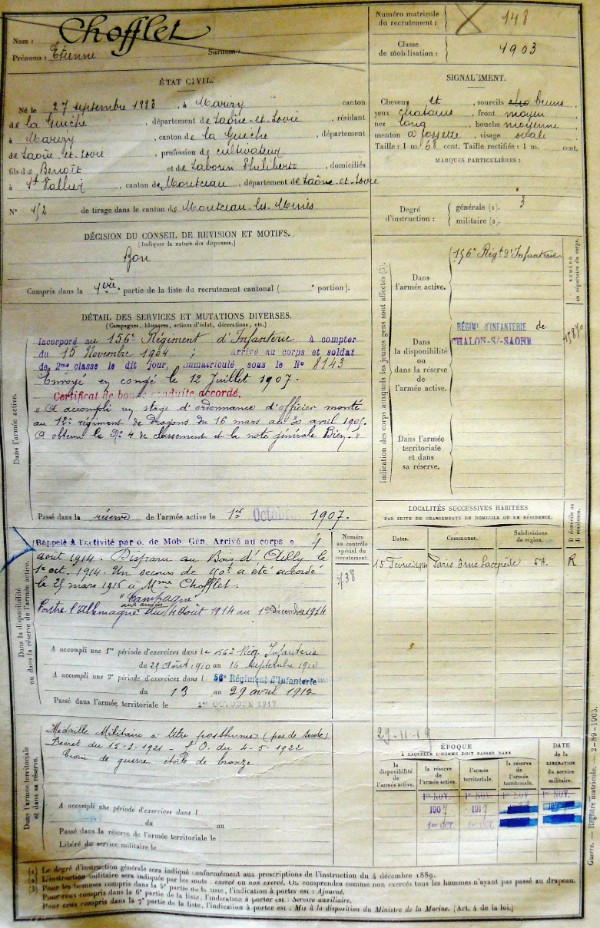 Nom : Chofflet
Prénoms : Etienne Surnom :
Numéro matricule du recrutement : 148
Classe de mobilisation : 1903
ÉTAT CIVIL.
Né le 27 septembre , à canton
de La Guiche , département de Saône-et-Loire , résidant
à , canton de La Guiche , département
de Saône-et-Loire , profession de cultivateur
fils de Benoît et de Philiberte , domiciliés
à St Vallier , canton de Montceau , département de Saône-et-Loire
N° de tirage dans le canton de Montceau-les-Mines
SIGNALEMENT.
Cheveux et sourcils bruns
yeux chatains , front moyen
nez long , bouche moyenne
menton à fossette , visage ovale
Taille : 1 m. 68 cent. Taille rectifiée : 1 m. cent.
MARQUES PARTICULIÈRES :
Degré d'instruction : générale (1). 3
militaire (2).
DÉCISION DU CONSEIL DE REVISION ET MOTIFS.
(Indiquer la nature des dispenses.)
Bon
Compris dans la 1ère partie de la liste du recrutement cantonal ( portion).
DÉTAIL DES SERVICES ET MUTATIONS DIVERSES.
(Campagnes, blessures, actions d'éclat, décorations, etc.)
Dans l'armée active.
Incorporé au 156e Régiment d'Infanterie à compter
du 15 Novembre 1904 ; arrivé au corps et soldat
de 2me classe le dit jour, immatriculé sous le N° 8143
Envoyé en congé le 12 Juillet 1907.
Certificat de bonne conduite accordé.
A accompli un stage d'ordonnance d'officier monté
au 12e régiment de Dragons du 16 mars au 30 avril
A obtenu le N° 4 de classement et la note générale Bien.
Passé dans la réserve de l'armée active le 1er Octobre 1907.
Dans la disponibilité ou dans la réserve de l'armée active.
Rappelé à l'activité par o. de Mob. Gén. Arrivé au corps le 4
août 1914. Disparu au Bois d'Ailly le
1er oct. 1914. Un secours de a été accordé
le mars à Mme Chofflet.
Campagne
Contre l'Allemagne du 4 Août 1914 au 1er Décembre 1914
A accompli une 1re période d'exercices dans le 156e Rég. Infanterie
du 29 Août 1910 au Septembre 1910
A accompli une 2e période d'exercices dans le 56e Régiment d'Infanterie
du 13 au 29 avril 1912
Passé dans l'armée territoriale le 1er OCTOBRE 1917
Numéro au contrôle spécial du recrutement
Dans l'armée territoriale et dans sa réserve.
Médaille Militaire à titre posthume
Décret du J.O. du 4-5-1922
Croix de guerre étoile de bronze
A accompli une période d'exercices dans l
du au
Passé dans la réserve de l'armée territoriale le
Libéré du service militaire le
Indication des corps auxquels les jeunes gens sont affectés (3).
Dans l'armée active. 156e Régt d'Infanterie
Dans la disponibilité ou dans la réserve de l'armée active. RÉGIMt D'INFANTERIE de CHALON-S/-SAONE
Dans l'armée territoriale et dans sa réserve.
NUMÉRO au répertoire du corps.
LOCALITÉS SUCCESSIVES HABITÉES
PAR SUITE DE CHANGEMENTS DE DOMICILE OU DE RÉSIDENCE.
Dates. Communes. Subdivisions de région. D domicile ou R résidence
Paris rue Lacépède R
29-11-19
ÉPOQUE
À LAQUELLE L'HOMME DOIT PASSER DANS
la disponibilité de l'armée active. la réserve de l'armée active. l'armée territoriale. la réserve de l'armée territoriale.
DATE de la LIBÉRATION du service militaire.
(1) Le degré d'instruction générale sera indiqué conformément aux prescriptions de l'instruction du 4 décembre 1889.
(2) L'instruction militaire sera indiquée par les mots : exercé ou non exercé. On comprendra comme non exercés tous les hommes n'ayant pas passé au drapeau.
(3) Pour les hommes compris dans la 5e partie de la liste, l'indication à porter est : Ajourné.
Pour ceux compris dans la 6e partie de la liste, l'indication à porter est : Service auxiliaire.
Pour ceux compris dans la 7e partie de la liste, l'indication à porter est : Mis à la disposition du Ministre de la Marine. (Art. 4 de la loi.)
Guerre. — Registre matricule. — 2-89-1903.